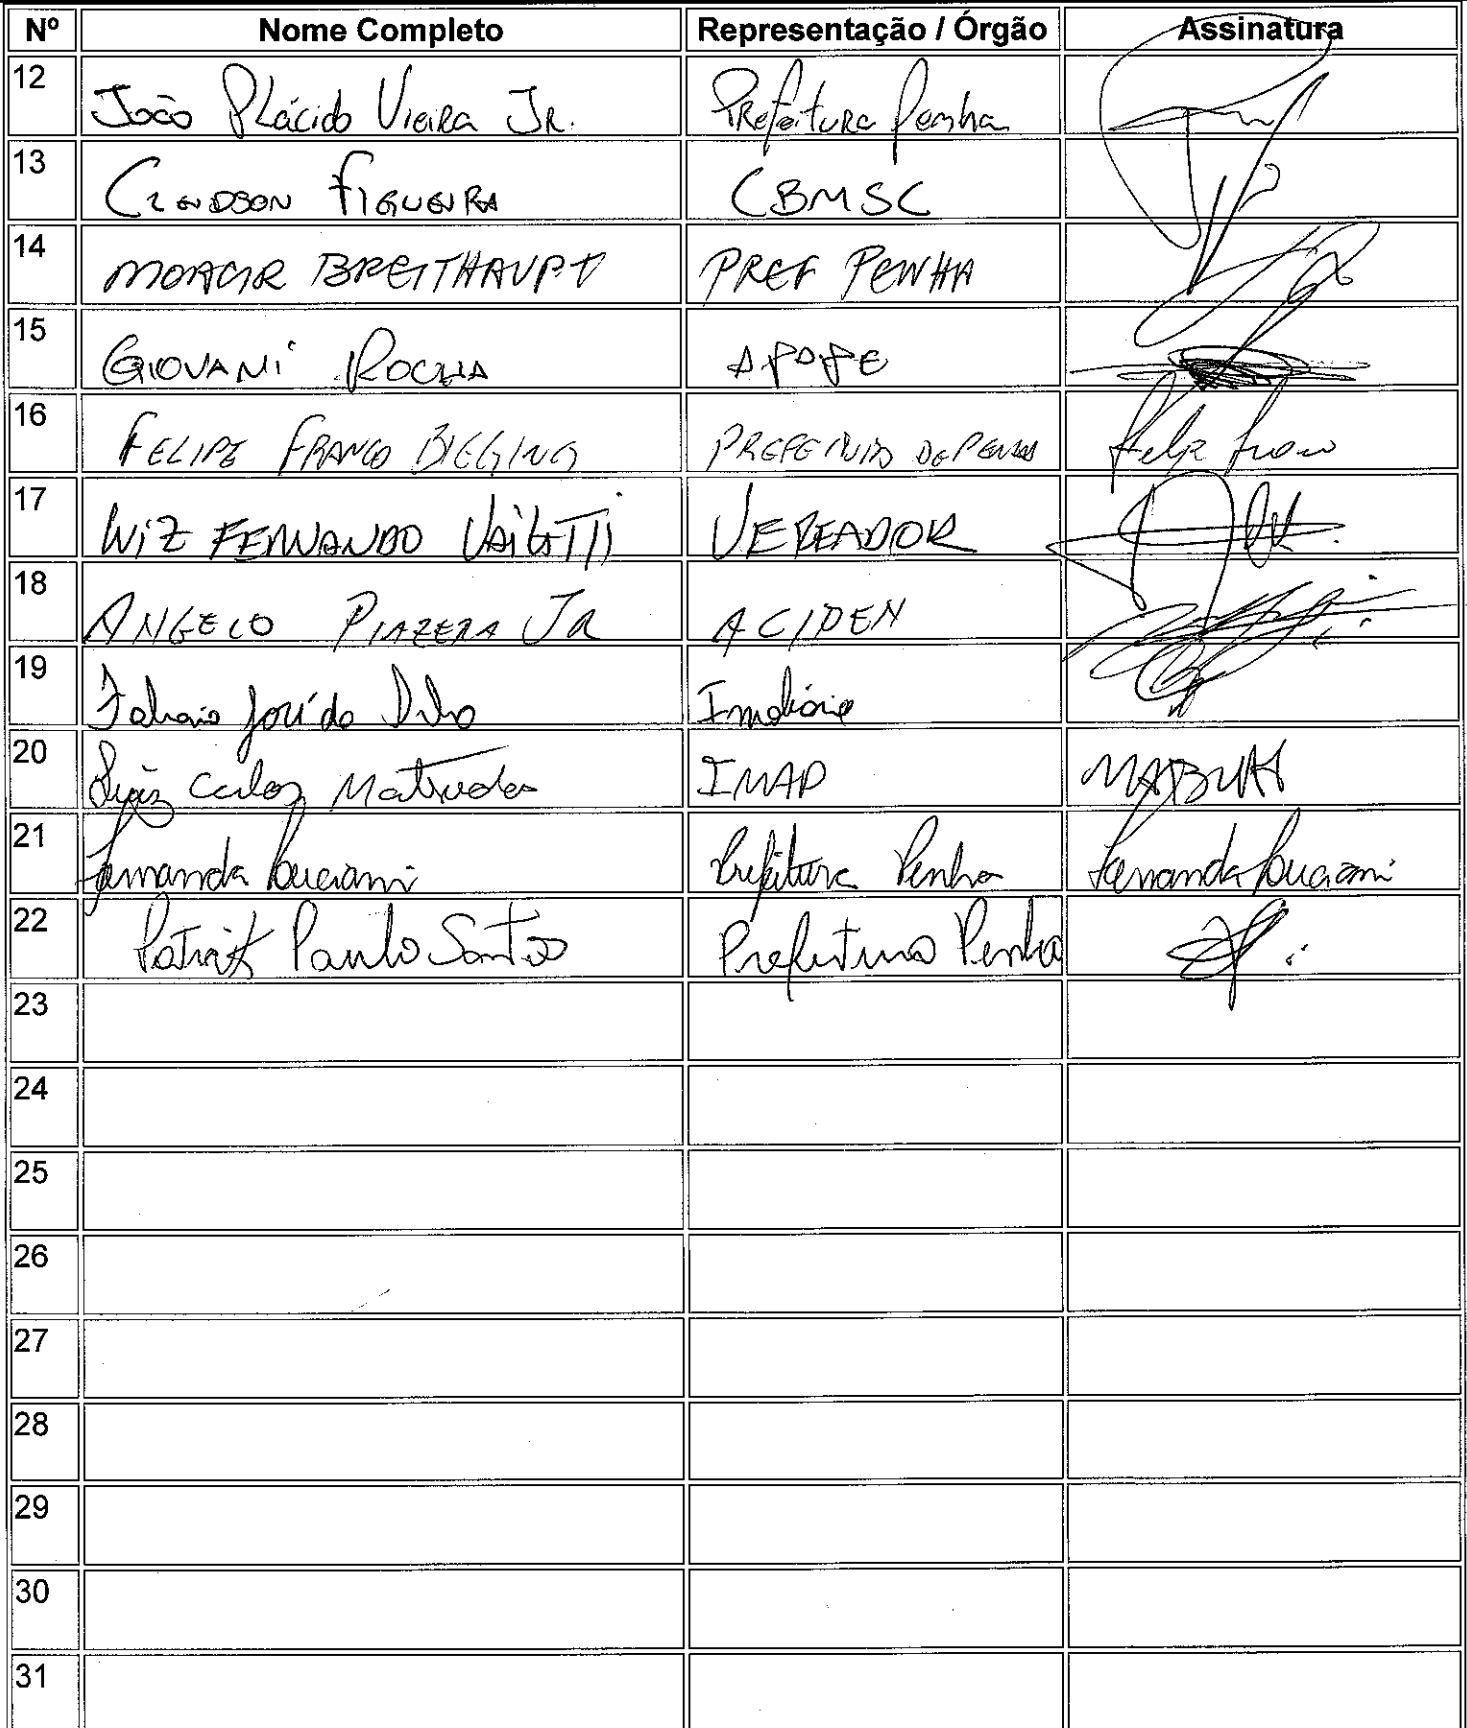 Nº Nome Completo Representação / Órgão Assinatura
12 João Plácido Vieira Jr. Prefeitura Penha
13 Figueira CBMSC
14 MOACIR BREITHAUPT PREF PENHA
15 GIOVANI ROCHA APOPE
16 FELIPE FRANCO DE Felipe Franco
17 LUIZ FERNANDO VEREADOR
18 ANGELO PIAZERA JR ACIPEN
19 José da
20 Luiz Carlos IMAP
21 Fernanda Luciani Prefeitura Penha Fernanda Luciani
22 Patrick Paulo Santos Prefeitura Penha
23
24
25
26
27
28
29
30
31